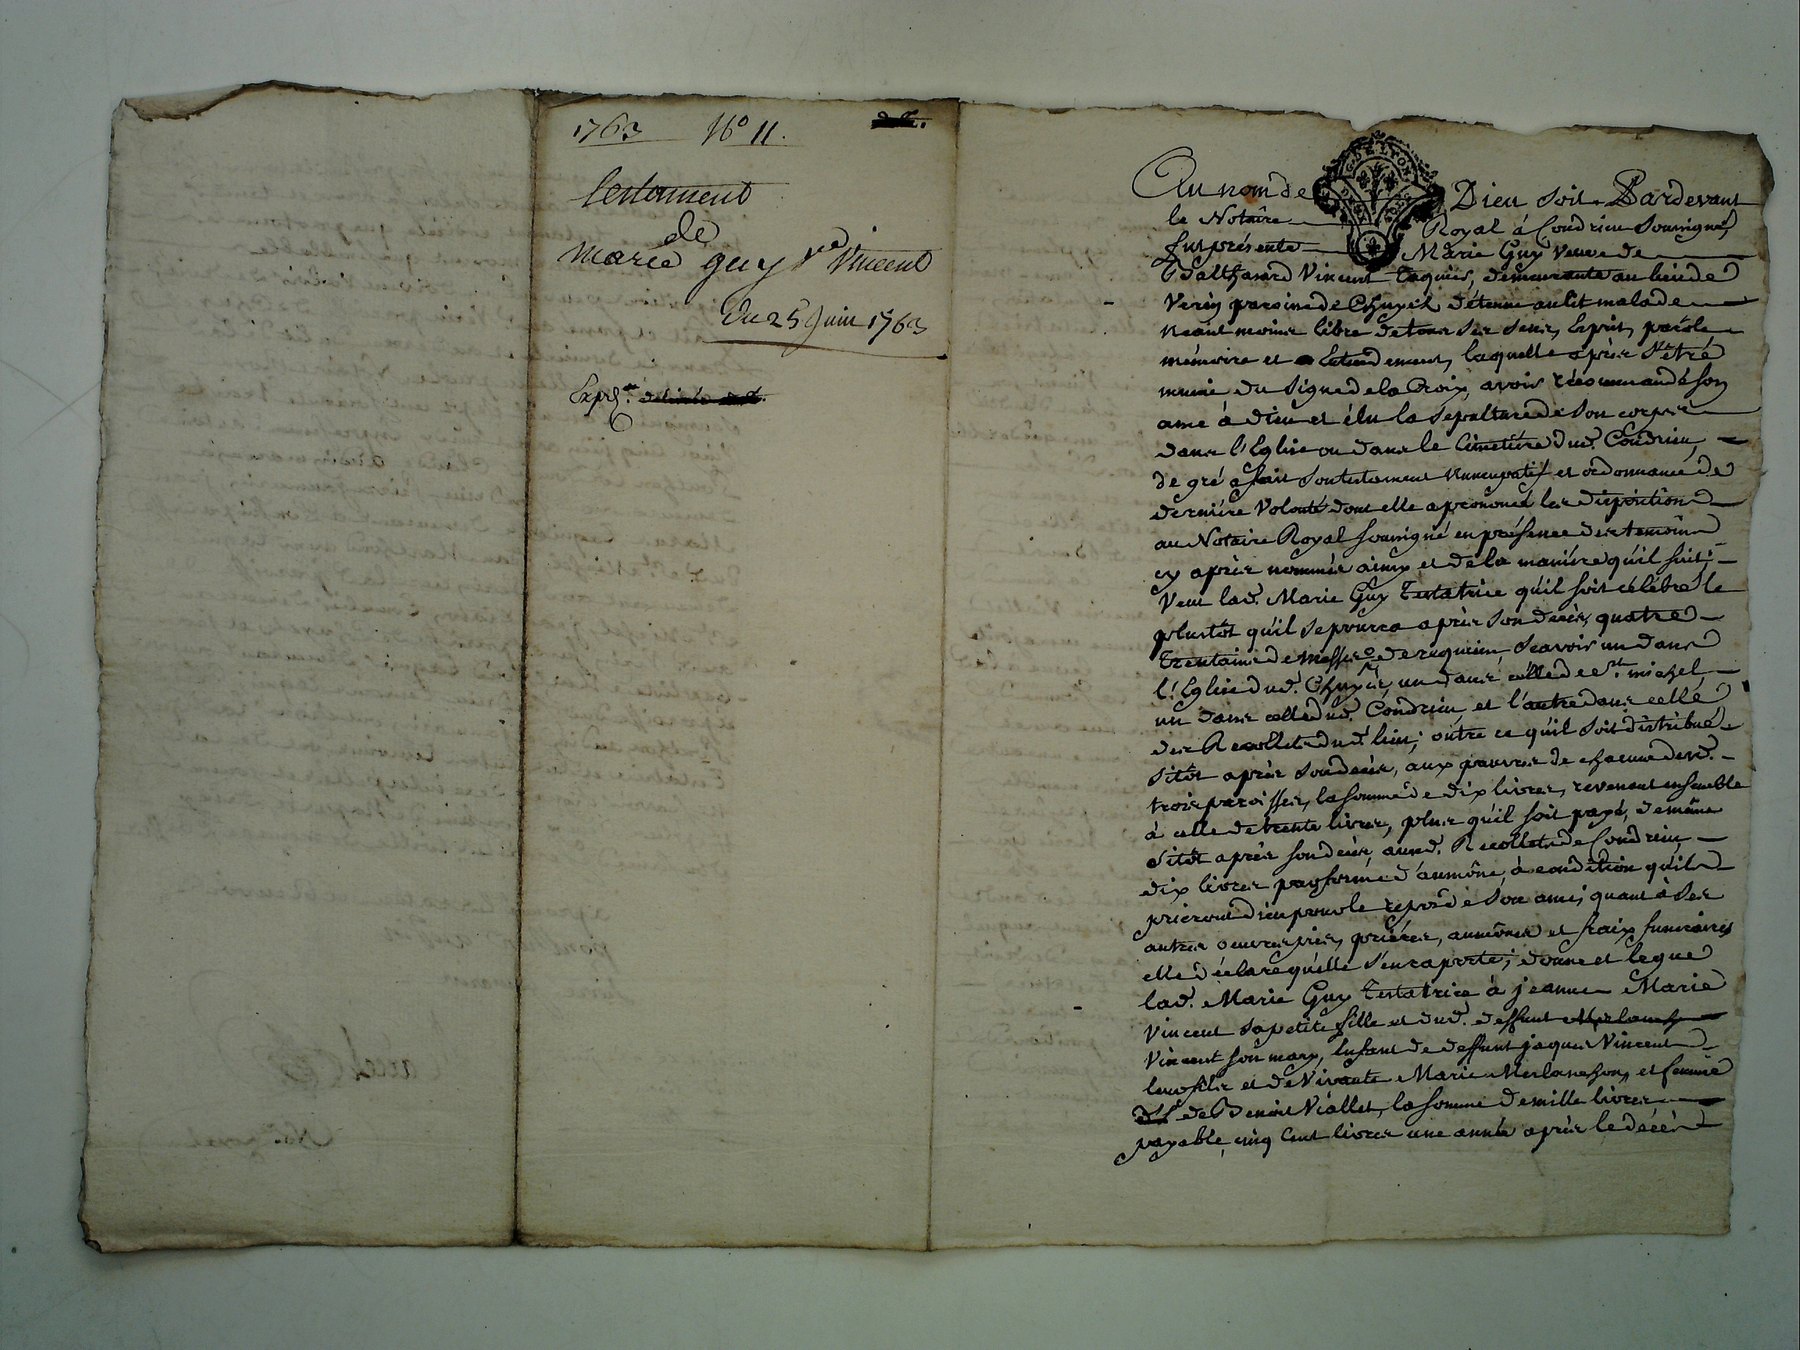 1763 No 11.
testament
de
marie guy ve Vincent
du 25 Juin 1763
Exped.on
Au nom de Dieu soit Pardevant
le Notaire Royal à Condrieu soussigné,
fut présente Marie Guy veuve de
Balthazard Vincent demeurante au lieu de
Verin paroisse de Chuyer détenue au lit malade
neant moins libre de tous ses sens, Esprit, parole
mémoire et Entendement, laquelle après s'etré
munie du signe de la Croix, avoir récommandé son
ame à dieu et élu la sepulture de son corps
dans l'Eglise ou dans le Cimetiére dud. Condrieu,
de gré a fait son testament Nuncupatif et ordonnance de
derniére Volonté dont elle a prononcé les dispositions
au Notaire Royal soussigné en présence des temoins
cy aprés nommés ainsy et de la maniére qu'il suit;
Veut lad. Marie Guy Testatrice qu'il soit célébré le
plustôt qu'il se pourra après son decès, quatre
trentaines de Messes de requiem, sçavoir un dans
l'Eglise dud. Chuyer, un dans célle de st. michel,
un dans celle dud. Condrieu, et l'autre dans celle
des Recollets dud. lieu; outre ce qu'il soit distribué
sitôt après son decès, aux pauvres de chacune desd.
trois paroisses, la somme de dix livres, revenant ensemble
à celle de trente livres, plus qu'il soit payé, de même
sitôt après son decès, auxd. Recollets de Condrieu
dix livres par forme d'aumône, à condition qu'ils
prieront dieu pour le repos de son ame; quant à ses
autres oeuvres pies, priéres, aumônes et fraix funeraires
elle déclare qu'elle s'en raporte; donne et legue
lad. Marie Guy Testatrice à jeanne Marie
Vincent sa petite fille et dud. deffunt
Vincent son mary, Enfant de deffunt jaques Vincent
leur fils et de Vivante Marie Merlanchon, et femme
de Benoit Viallet, la somme de mille livres
payable, cinq cent livres une année après le décès